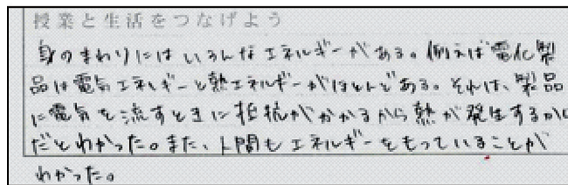 授業と生活をつなげよう
身のまわりにはいろんなエネルギーがある。例えば電化製
品は電気エネルギーと熱エネルギーがほとんどである。それは、製品
に電気を流すときに抵抗がかかるから熱が発生するから
だとわかった。また、人間もエネルギーをもっていることが
わかった。